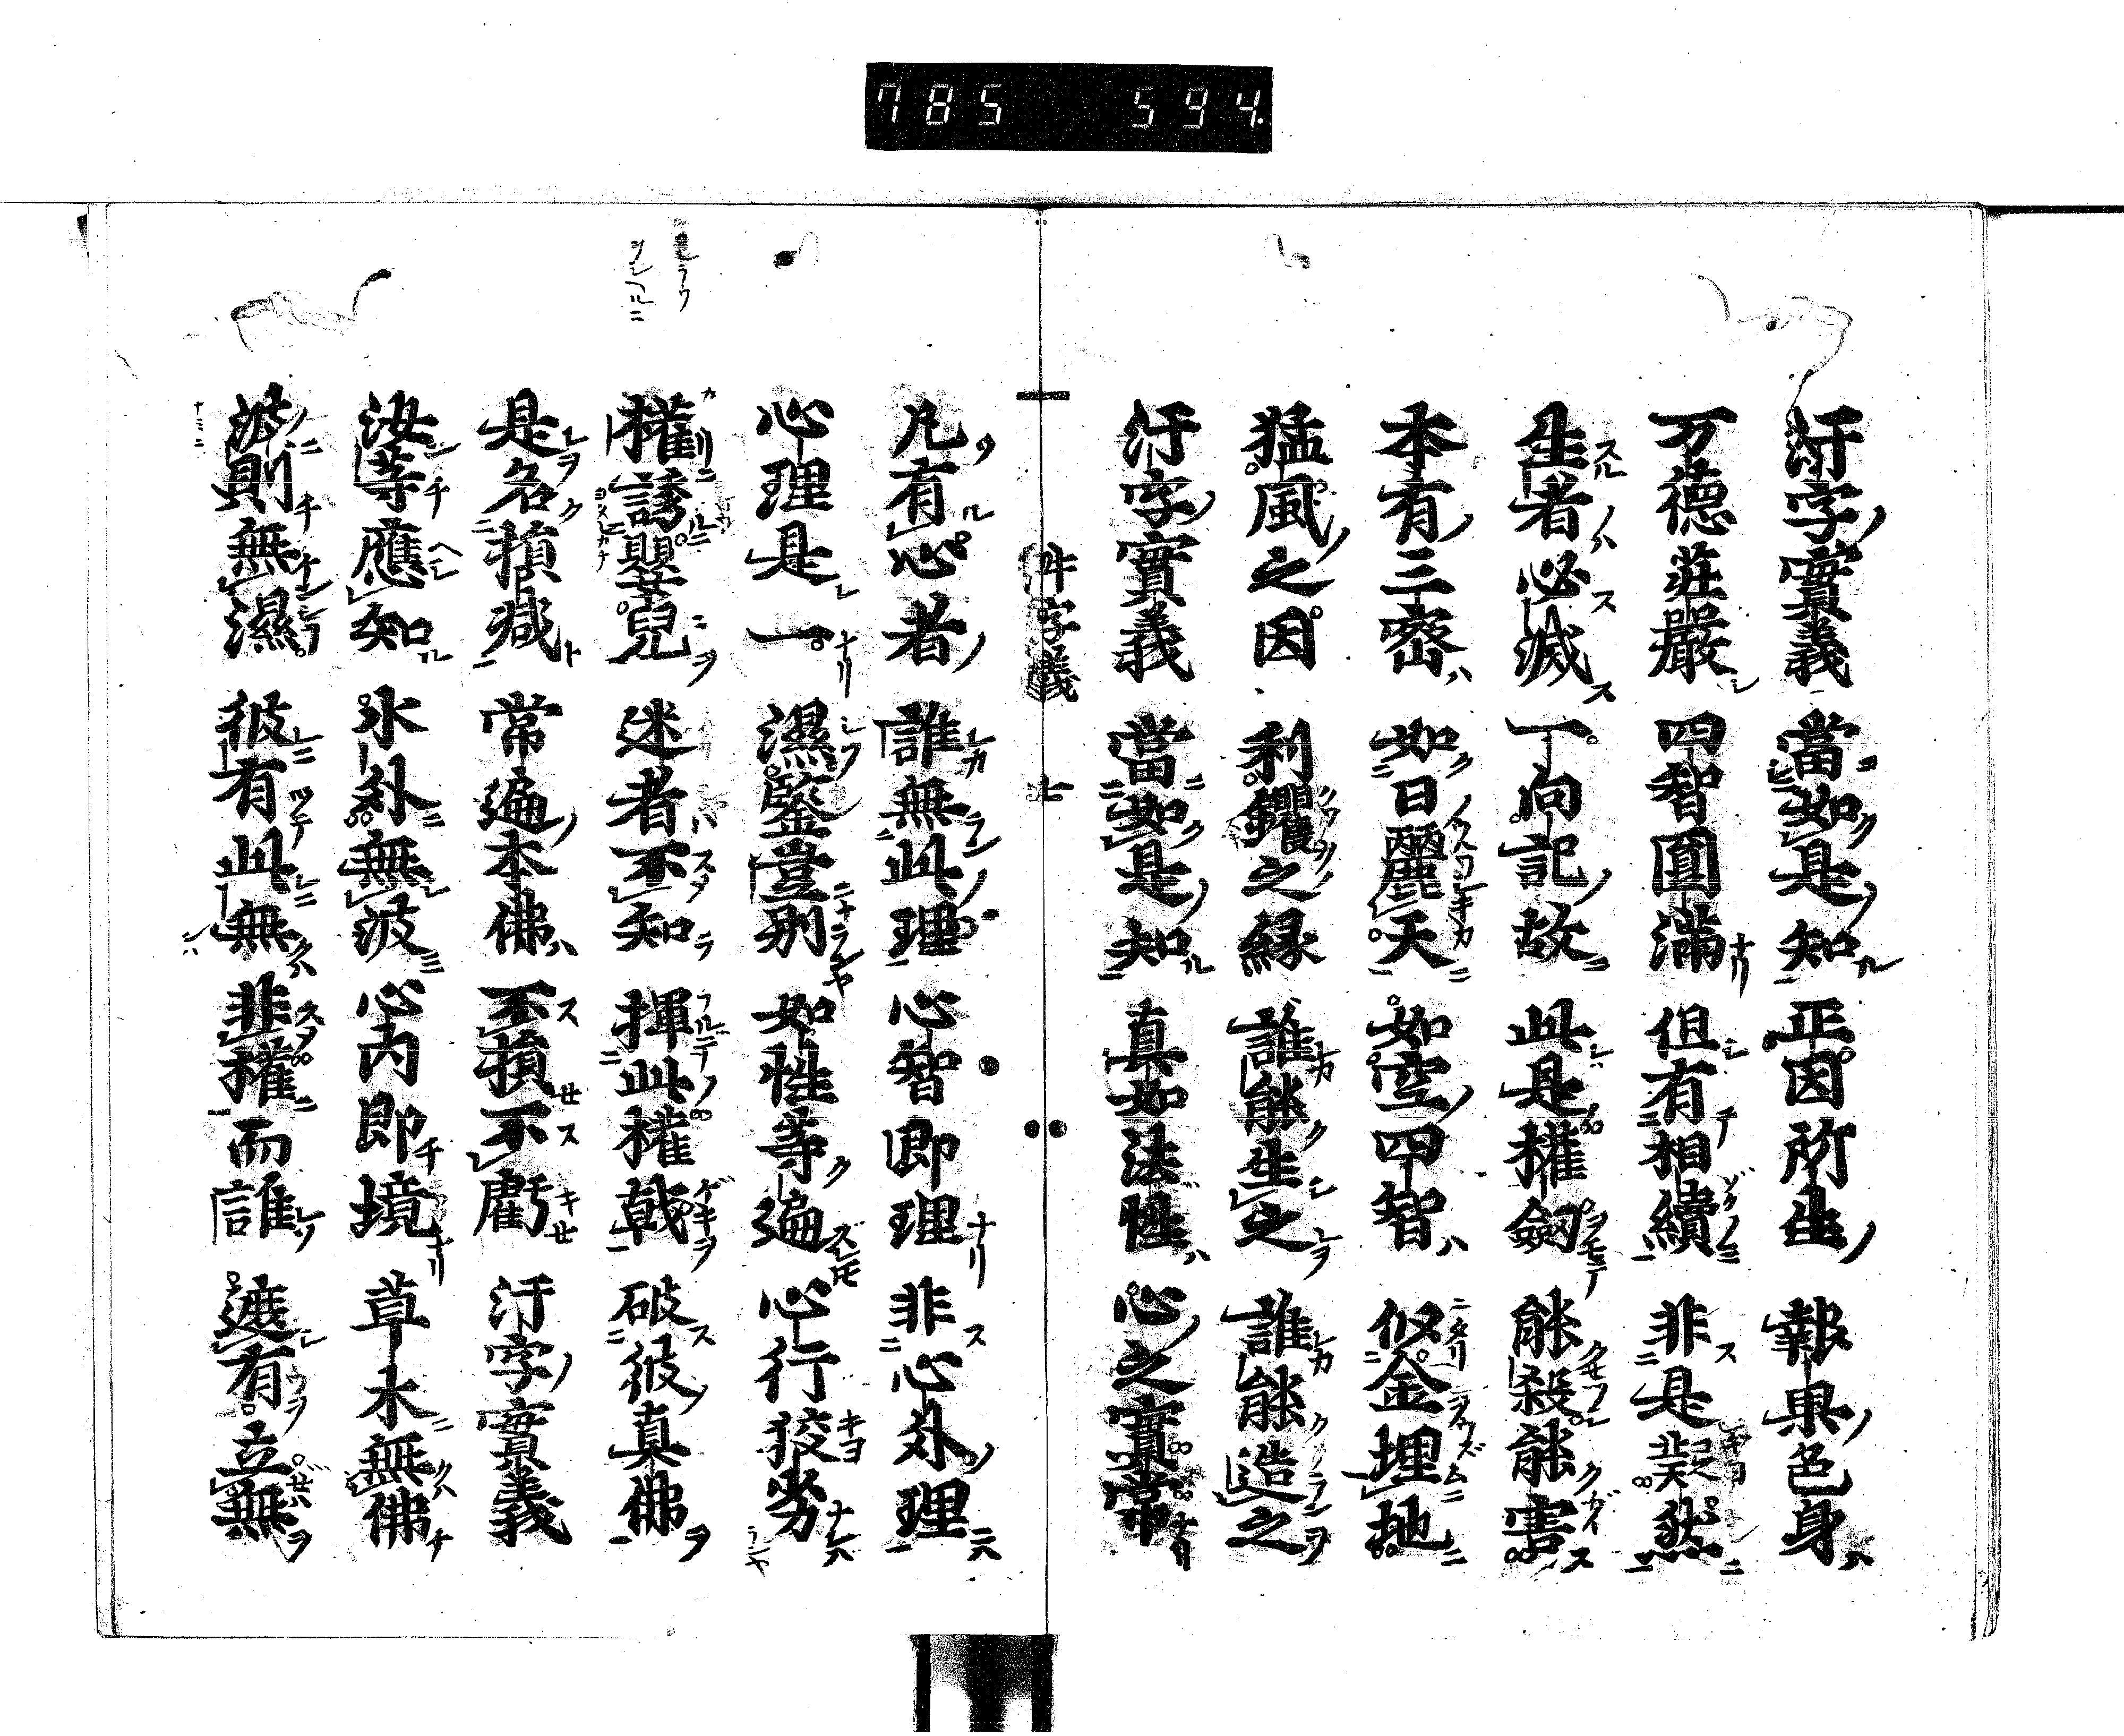 785 594.
汙字實義 當如是知 正因所生 報果色身
万徳莊嚴 四智圓滿 但有相續 非是凝然
生者必滅 一向記故 此是權劒 能殺能害
本有三密 如日麗天 如空四智 似金埋地
猛風之因 利钁之緣 誰能生之 誰能造之
汙字實義 當如是知 真如法性 心之實常
吽字義 七
凡有心者 誰無此理 心智即理 非心外理
心理是一 濕鑒豈別 如性等遍 心行狡劣
權誘嬰兒 迷者不知 揮此權戟 破彼真佛
是名損減 常遍本佛 不損不虧 汙字實義
汝等應知 水外無波 心内即境 草木無佛
波則無濕 彼有此無 非權而誰 遮有立無